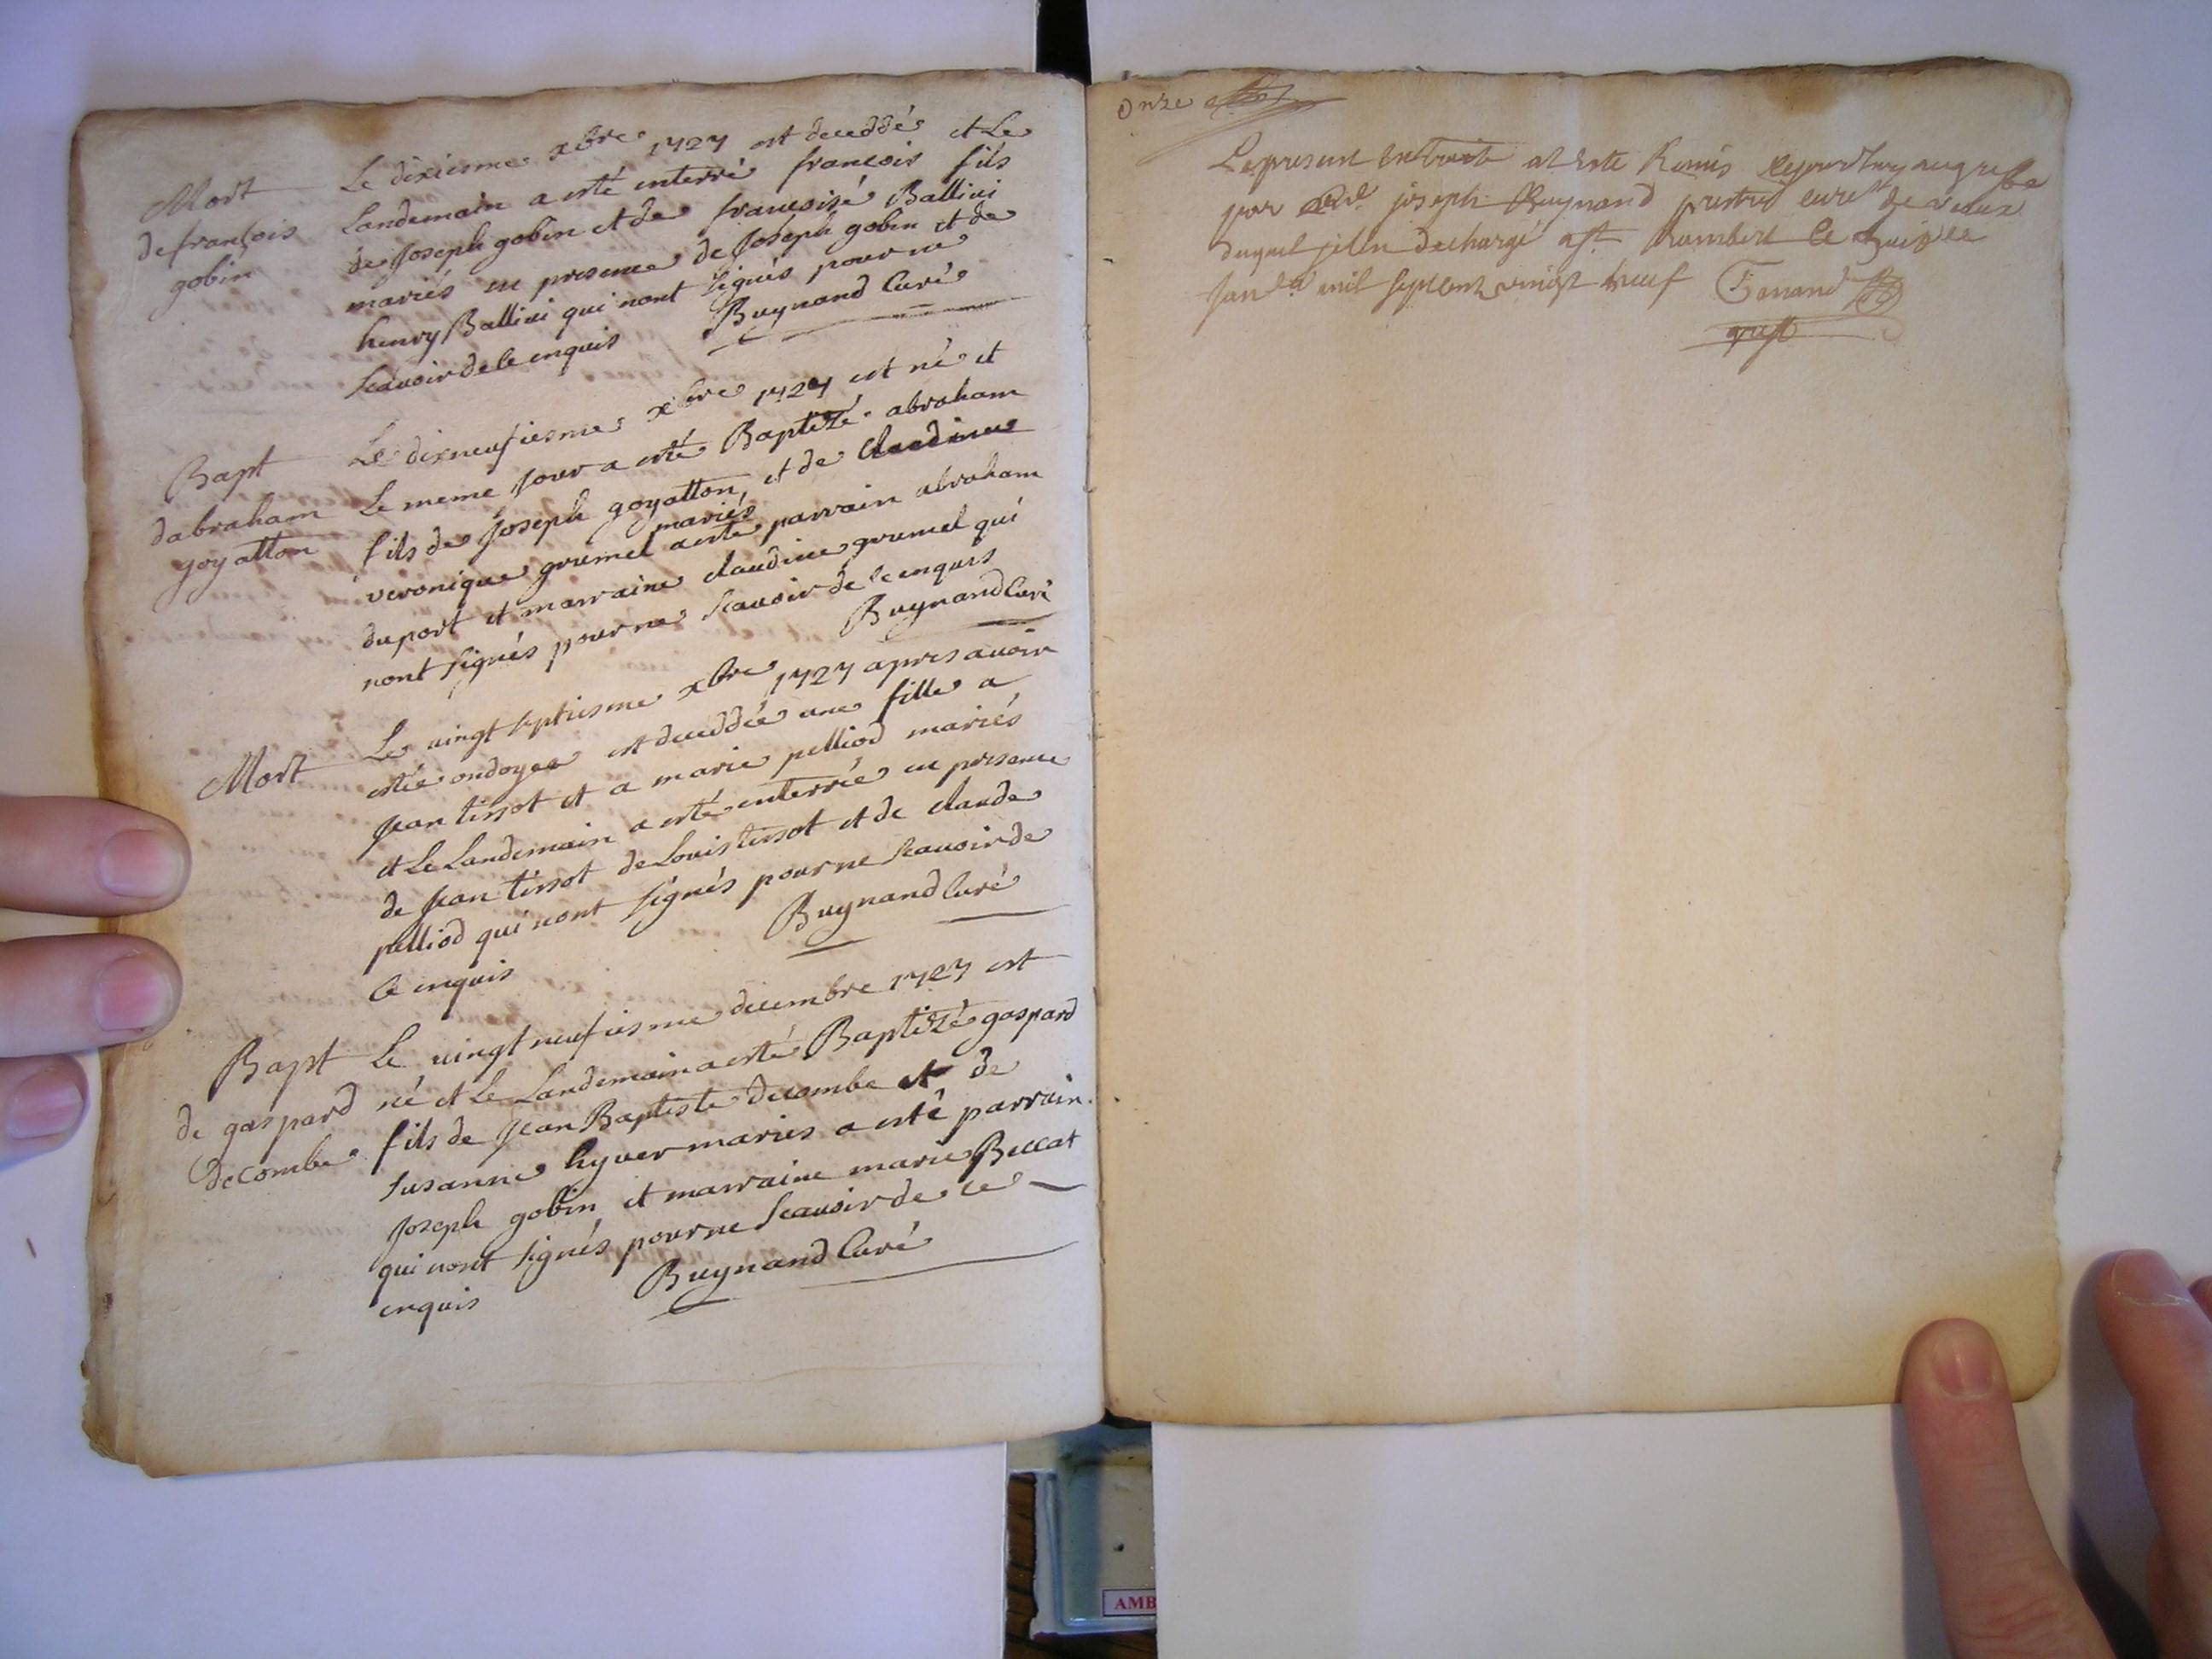 Mort
de françois
gobin
Le dixiesme xbre 1727 est deceddé et Le
Landemain a esté enterré francois fils
de Joseph gobin et de francoise Ballivi
mariés en presence de Joseph gobin et de
henry Ballivi qui nont signés pour ne
scavoir de le enquis Buynand Curé
Bapt
dabraham
goyatton
Le dixneufiesme xbre 1727 est né et
Le meme Jour a esté Baptizé abraham
fils de Joseph goyatton, et de Claudine
mariés
veronique grumel a esté parrain abraham
duport et marraine claudine grumel qui
nont signés pour ne scavoir de le enquis
Buynand Curé
Mort
Le vingt septiesme xbre 1727 apres avoir
estée ondoyee est deceddée une fille a
Jean tissot et a marie pelliod mariés
et Le Landemain a esté enterrée en presence
de Jean tissot de Louis tissot et de claude
pelliod qui nont signés pour ne scavoir de
Ce enquis Buynand Curé
Bapt
de gaspard
decombe
Le vingt neufiesme decembre 1727 est
né et Le Landemain a esté Baptizé gaspard
fils de Jean Baptiste decombe et de
susanne hyver mariés a esté parrain
Joseph gobin et marraine marie Beccat
qui nont signés pour ne scavoir de ce
enquis Buynand Curé
Onze
Le present Extrait at este Remis cejourdhuy au greffe
par joseph Buynand prestre curé de vaux
duquel jl en dechargé a st Rambert le
Jan mil septcent vingt neuf
greff